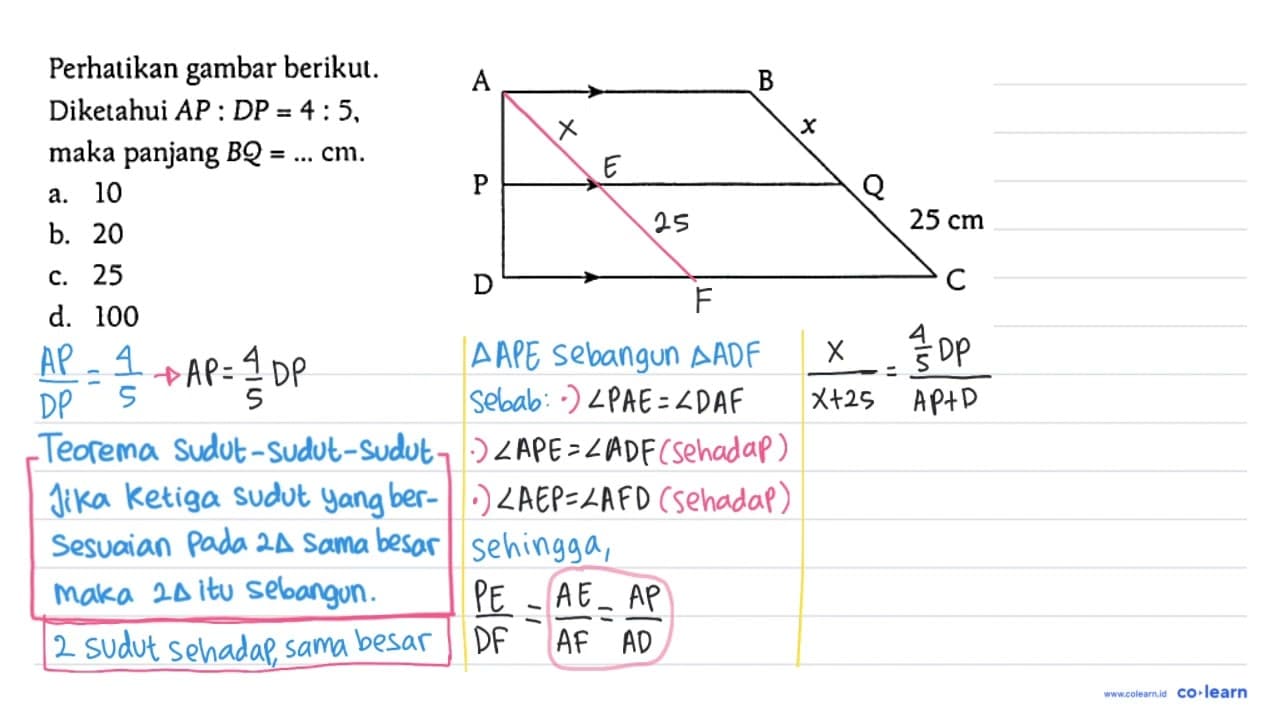 Perhatikan gambar berikut.
Diketahui AP : DP = 4 : 5,
maka panjang BQ = ... cm.
a. 10
b. 20
c. 25
d. 100
A
B
x
x
E
P
Q
25
25 cm
D
F
C
AP/DP = 4/5 → AP = 4/5 DP
Teorema sudut-sudut-sudut
Jika ketiga sudut yang ber-
sesuaian pada 2Δ sama besar
maka 2Δ itu sebangun.
2 sudut sehadap, sama besar
ΔAPE sebangun ΔADF
sebab: ·) ∠PAE = ∠DAF
·) ∠APE = ∠ADF (sehadap)
·) ∠AEP = ∠AFD (sehadap)
sehingga,
PE/DF = AE/AF = AP/AD
x/x+25 = 4/5 DP/AP+D
www.colearn.id co·learn